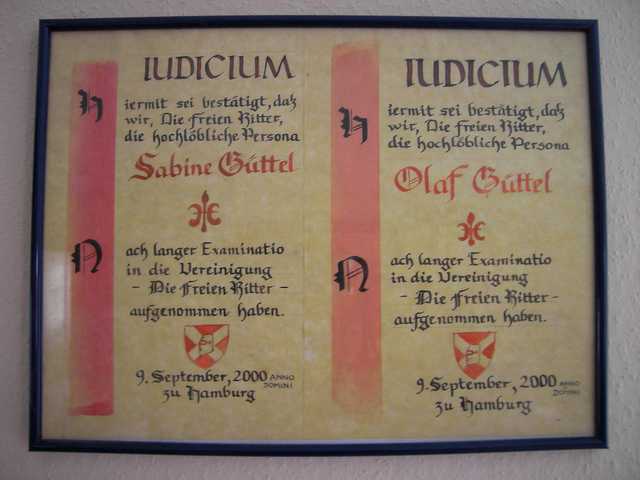 IUDICIUM
Hiermit sei bestätigt, daß
wir, Die Freien Ritter,
die hochlöbliche Persona
Sabine Güttel
Nach langer Examinatio
in die Vereinigung
- Die Freien Ritter -
aufgenommen haben.
9. September, 2000 ANNO DOMINI
zu Hamburg
IUDICIUM
Hiermit sei bestätigt, daß
wir, Die Freien Ritter,
die hochlöbliche Persona
Olaf Güttel
Nach langer Examinatio
in die Vereinigung
- Die Freien Ritter -
aufgenommen haben.
9. September, 2000 ANNO DOMINI
zu Hamburg